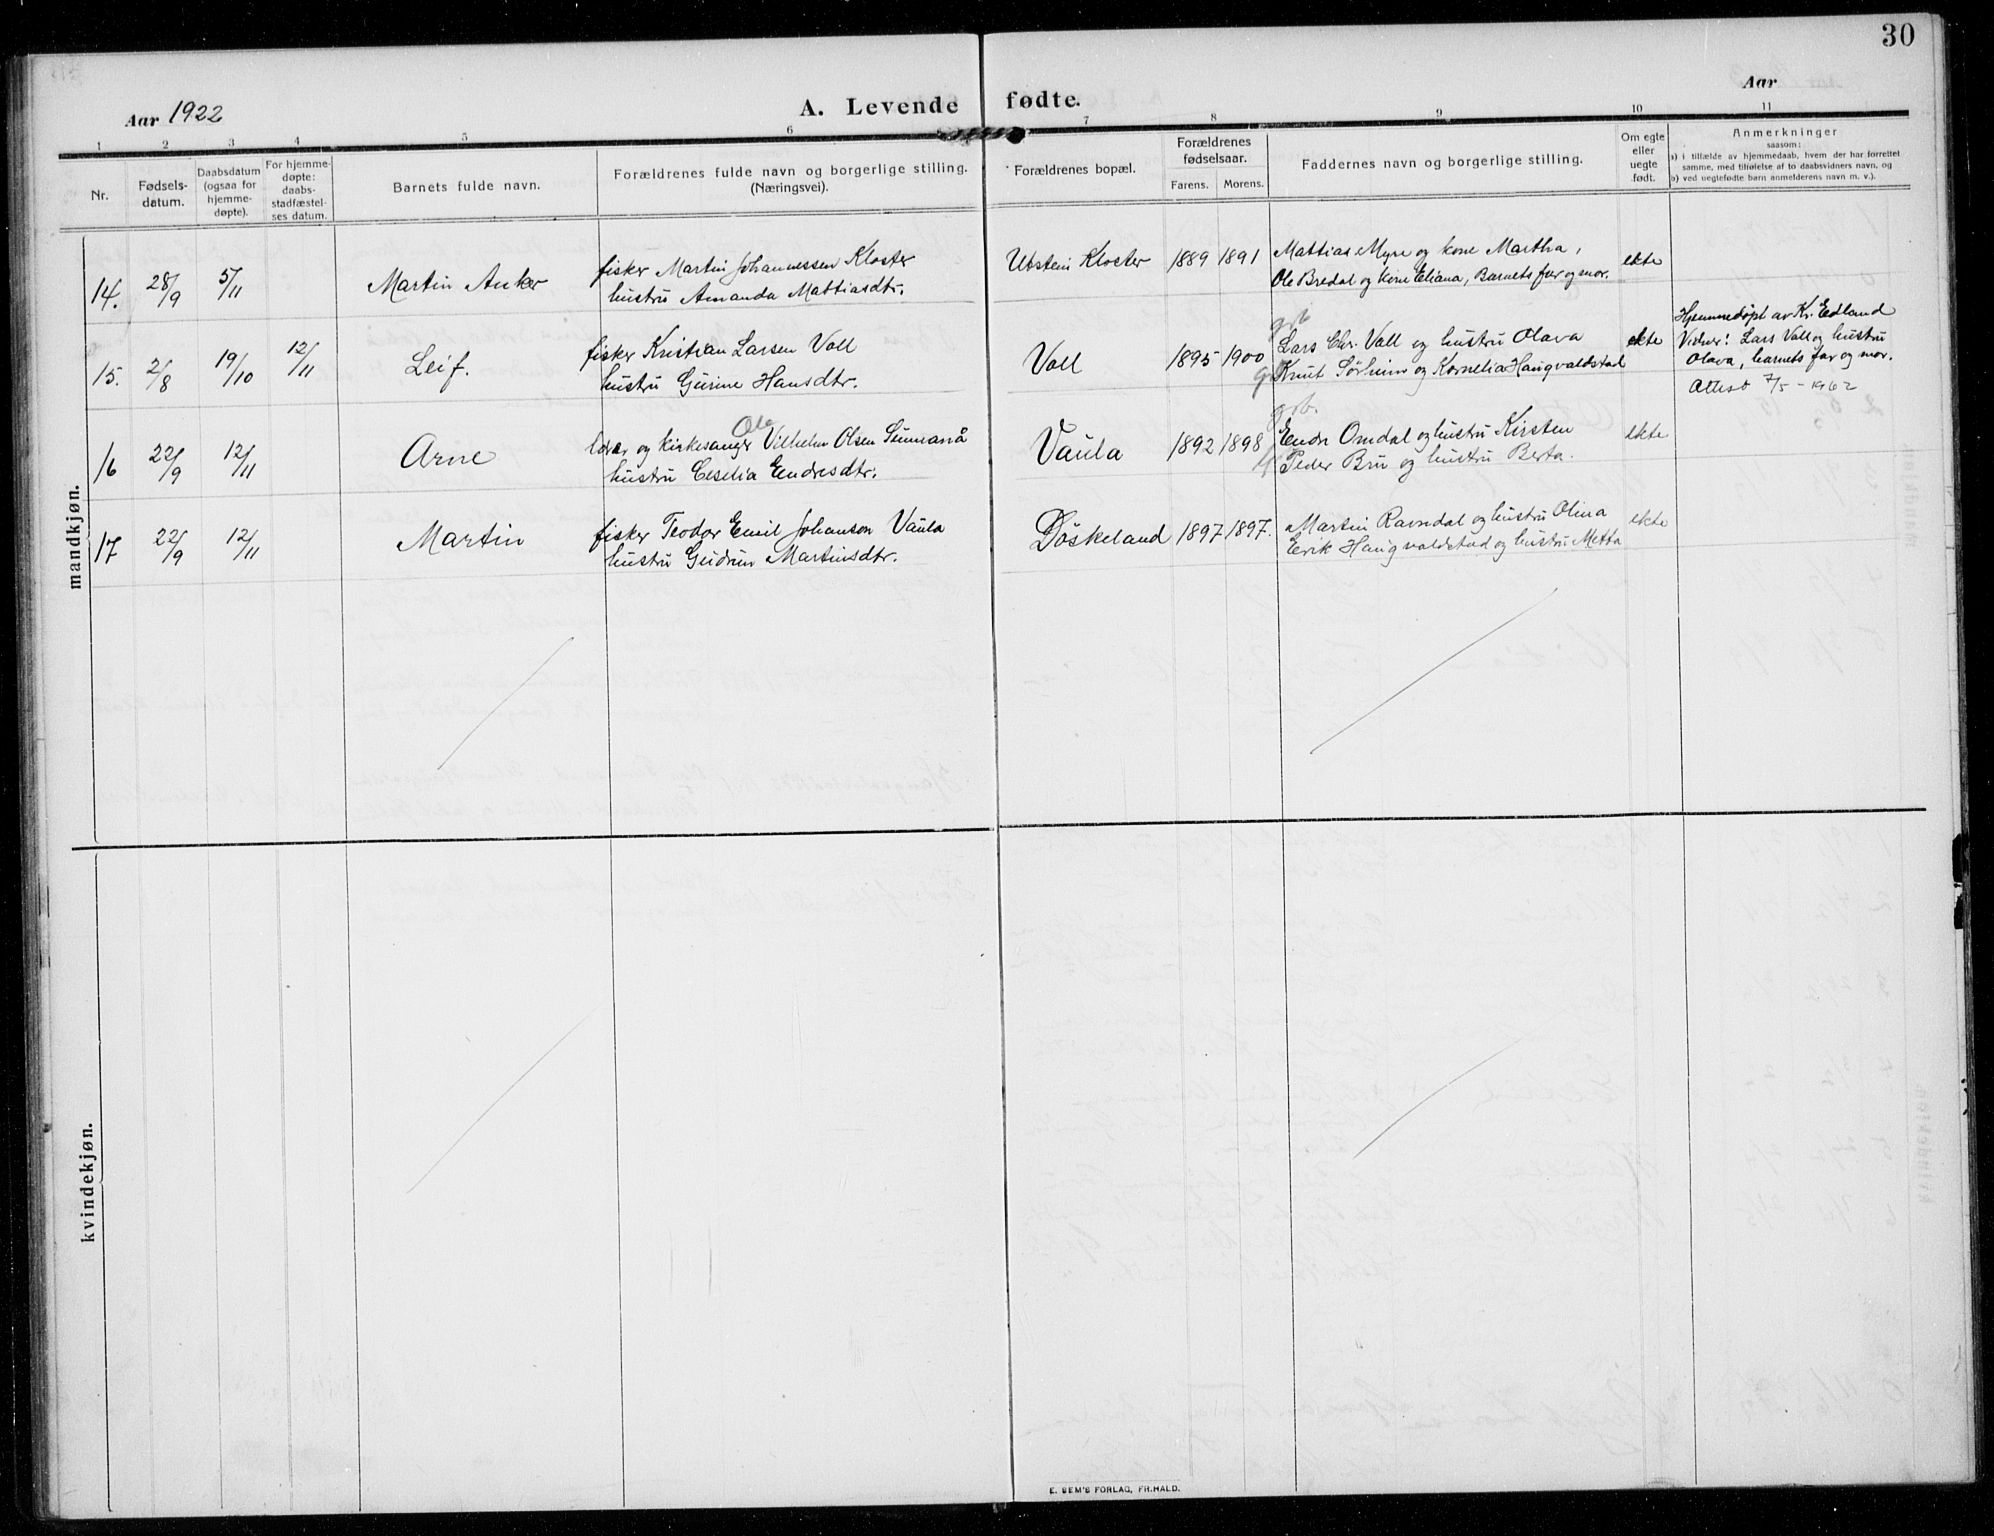 30
Aar 1922
A. Levende fødte.
Aar
1 2 3 4 5 6 7 8 9 10 11
Nr.
Fødsels-
datum.
Daabsdatum
(ogsaa for
hjemme-
døpte).
For hjemme-
døpte:
daabs-
stadfæstel-
ses datum.
Barnets fulde navn.
Forældrenes fulde navn og borgerlige stilling.
(Næringsvei).
Forældrenes bopæl.
Forældrenes
fødselsaar.
Farens. Morens.
Faddernes navn og borgerlige stilling.
Om egte
eller
uegte
født.
Anmerkninger
saasom:
a) i tilfælde av hjemmedaab, hvem der har forrettet
samme, med tilføielse af to daabsvidners navn, og
b) ved uegtefødte barn anmelderens navn m. v.).
mandkjøn.
14. 28/9 5/11 Martin Anker
fisker Martin Johannessen Kloster
hustru Amanda Mattiasdtr.
Utstein Kloster 1889 1891
Mattias Myre og kone Martha,
Ole Bredal og kone Eliana, Barnets far og mor.
ekte
15. 2/8 19/10 12/11 Leif.
fisker Kristian Larsen Voll
hustru Gurine Hansdtr.
Voll 1895 1900
grb
Lars Chr. Voll og hustru Olava
Knut Sørheim og Kornelia Haugvaldstad
ekte
Hjemmedøpt av Kr. Edland
Vidner: Lars Voll og hustru
Olava, barnets far og mor.
Attest 7/5 - 1962
16 22/9 12/11 Arne
Ole
lærer og kirkesanger Vilhelm Olsen Sunnanå
hustru Ceselia Endresdtr.
Vaula 1892 1898
grb.
Endre Omdal og hustru Kirsten
Peder Bru og hustru Berta.
ekte
17 22/9 12/11 Martin
fisker Teodor Emil Johanson Vaula
hustru Gudrun Martinsdtr.
Døskeland 1897 1897.
Martin Ravndal og hustru Olina
Eerik Haugvaldstad og hustru Metta
ekte
kvindekjøn.
E. SEM'S FORLAG, FR.HALD.